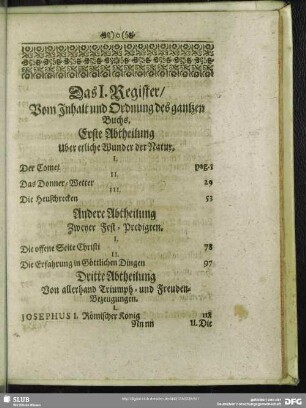 Das I. Register/
Vom Inhalt und Ordnung des gantzen
Buchs,
Erste Abtheilung
Uber etliche Wunder der Natur,
I.
Der Comet pag. 1
II.
Das Donner-Wetter 29
III.
Die Heuschrecken 53
Andere Abtheilung
Zweyer Fest-Predigten.
I.
Die offene Seite Christi 78
II.
Die Erfahrung in Göttlichen Dingen 97
Dritte Abtheilung
Von allerhand Triumph- und Freuden-
Bezeugungen.
I.
JOSEPHUS I. Römischer König 118
Nn nn II. Die
SLUB
DFG